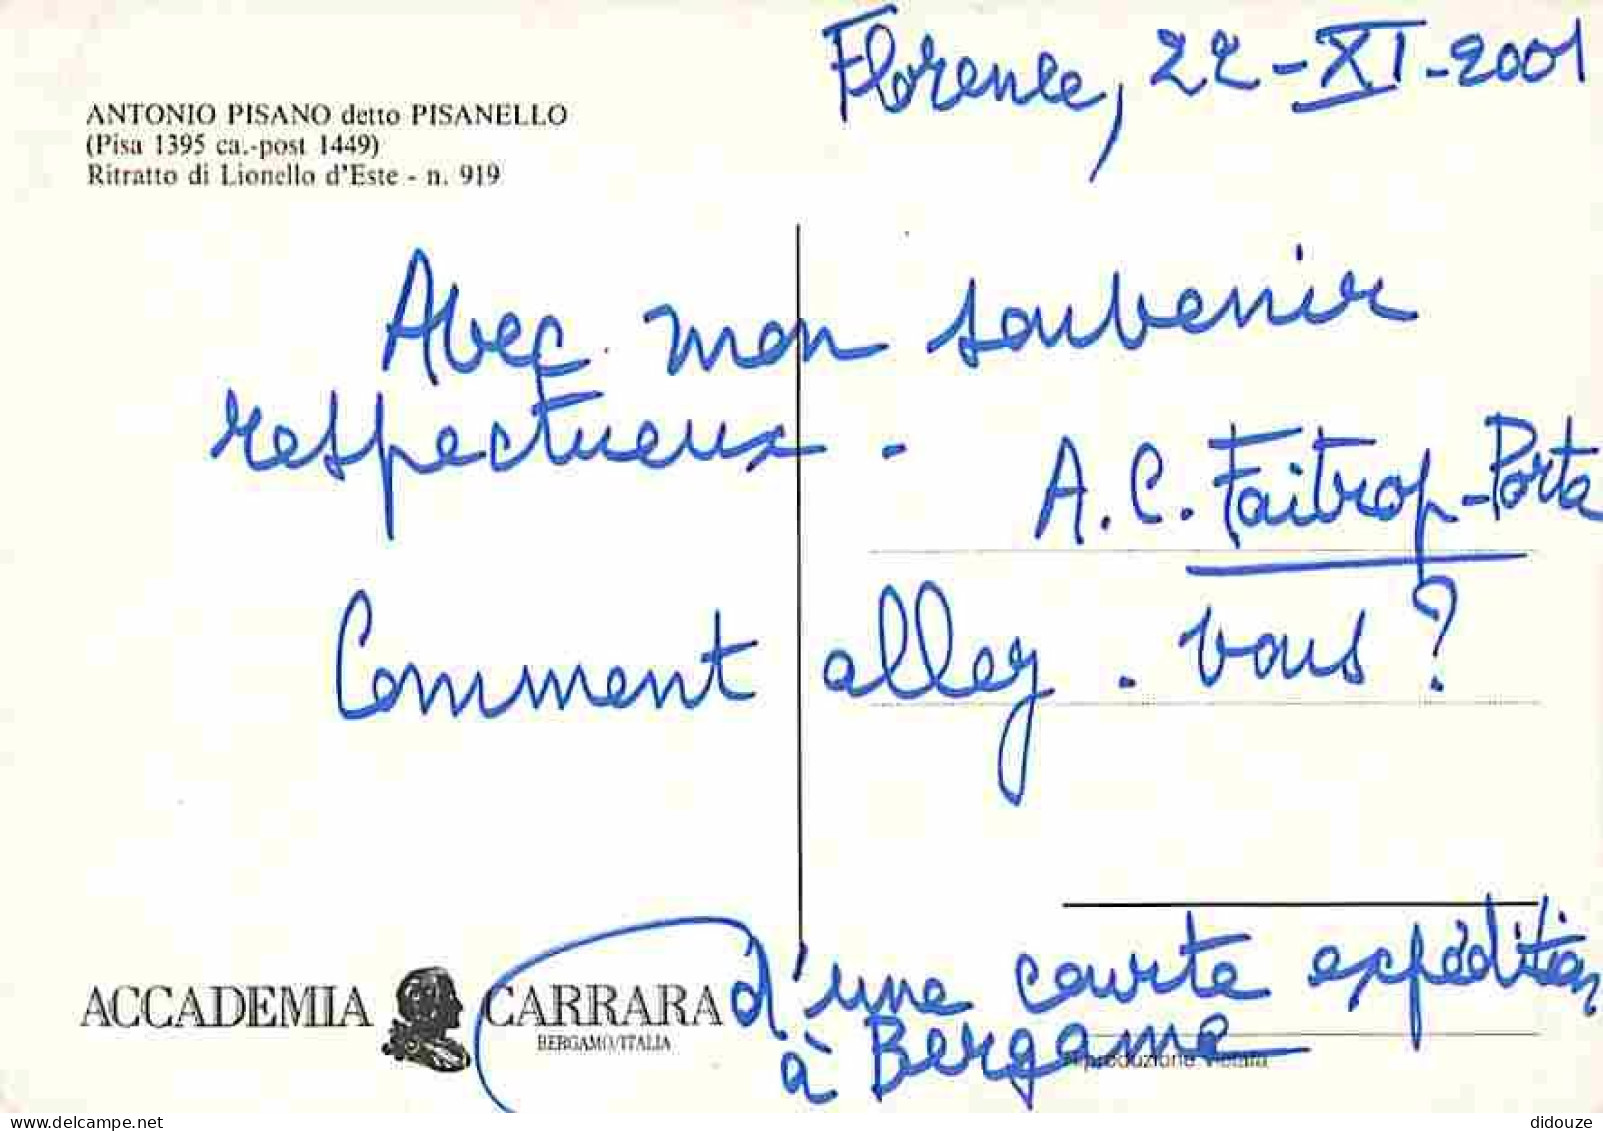 Florence, 22-XI-2001
ANTONIO PISANO detto PISANELLO
(Pisa 1395 ca.-post 1449)
Ritratto di Lionello d'Este - n. 919
Avec mon souvenir
respectueux.
A.C. Faitrop-Porta
Comment allez-vous?
d'une courte expédition
à Bergame
ACCADEMIA CARRARA
BERGAMO/ITALIA
Riproduzione vietata
https://www.delcampe.net
didouze